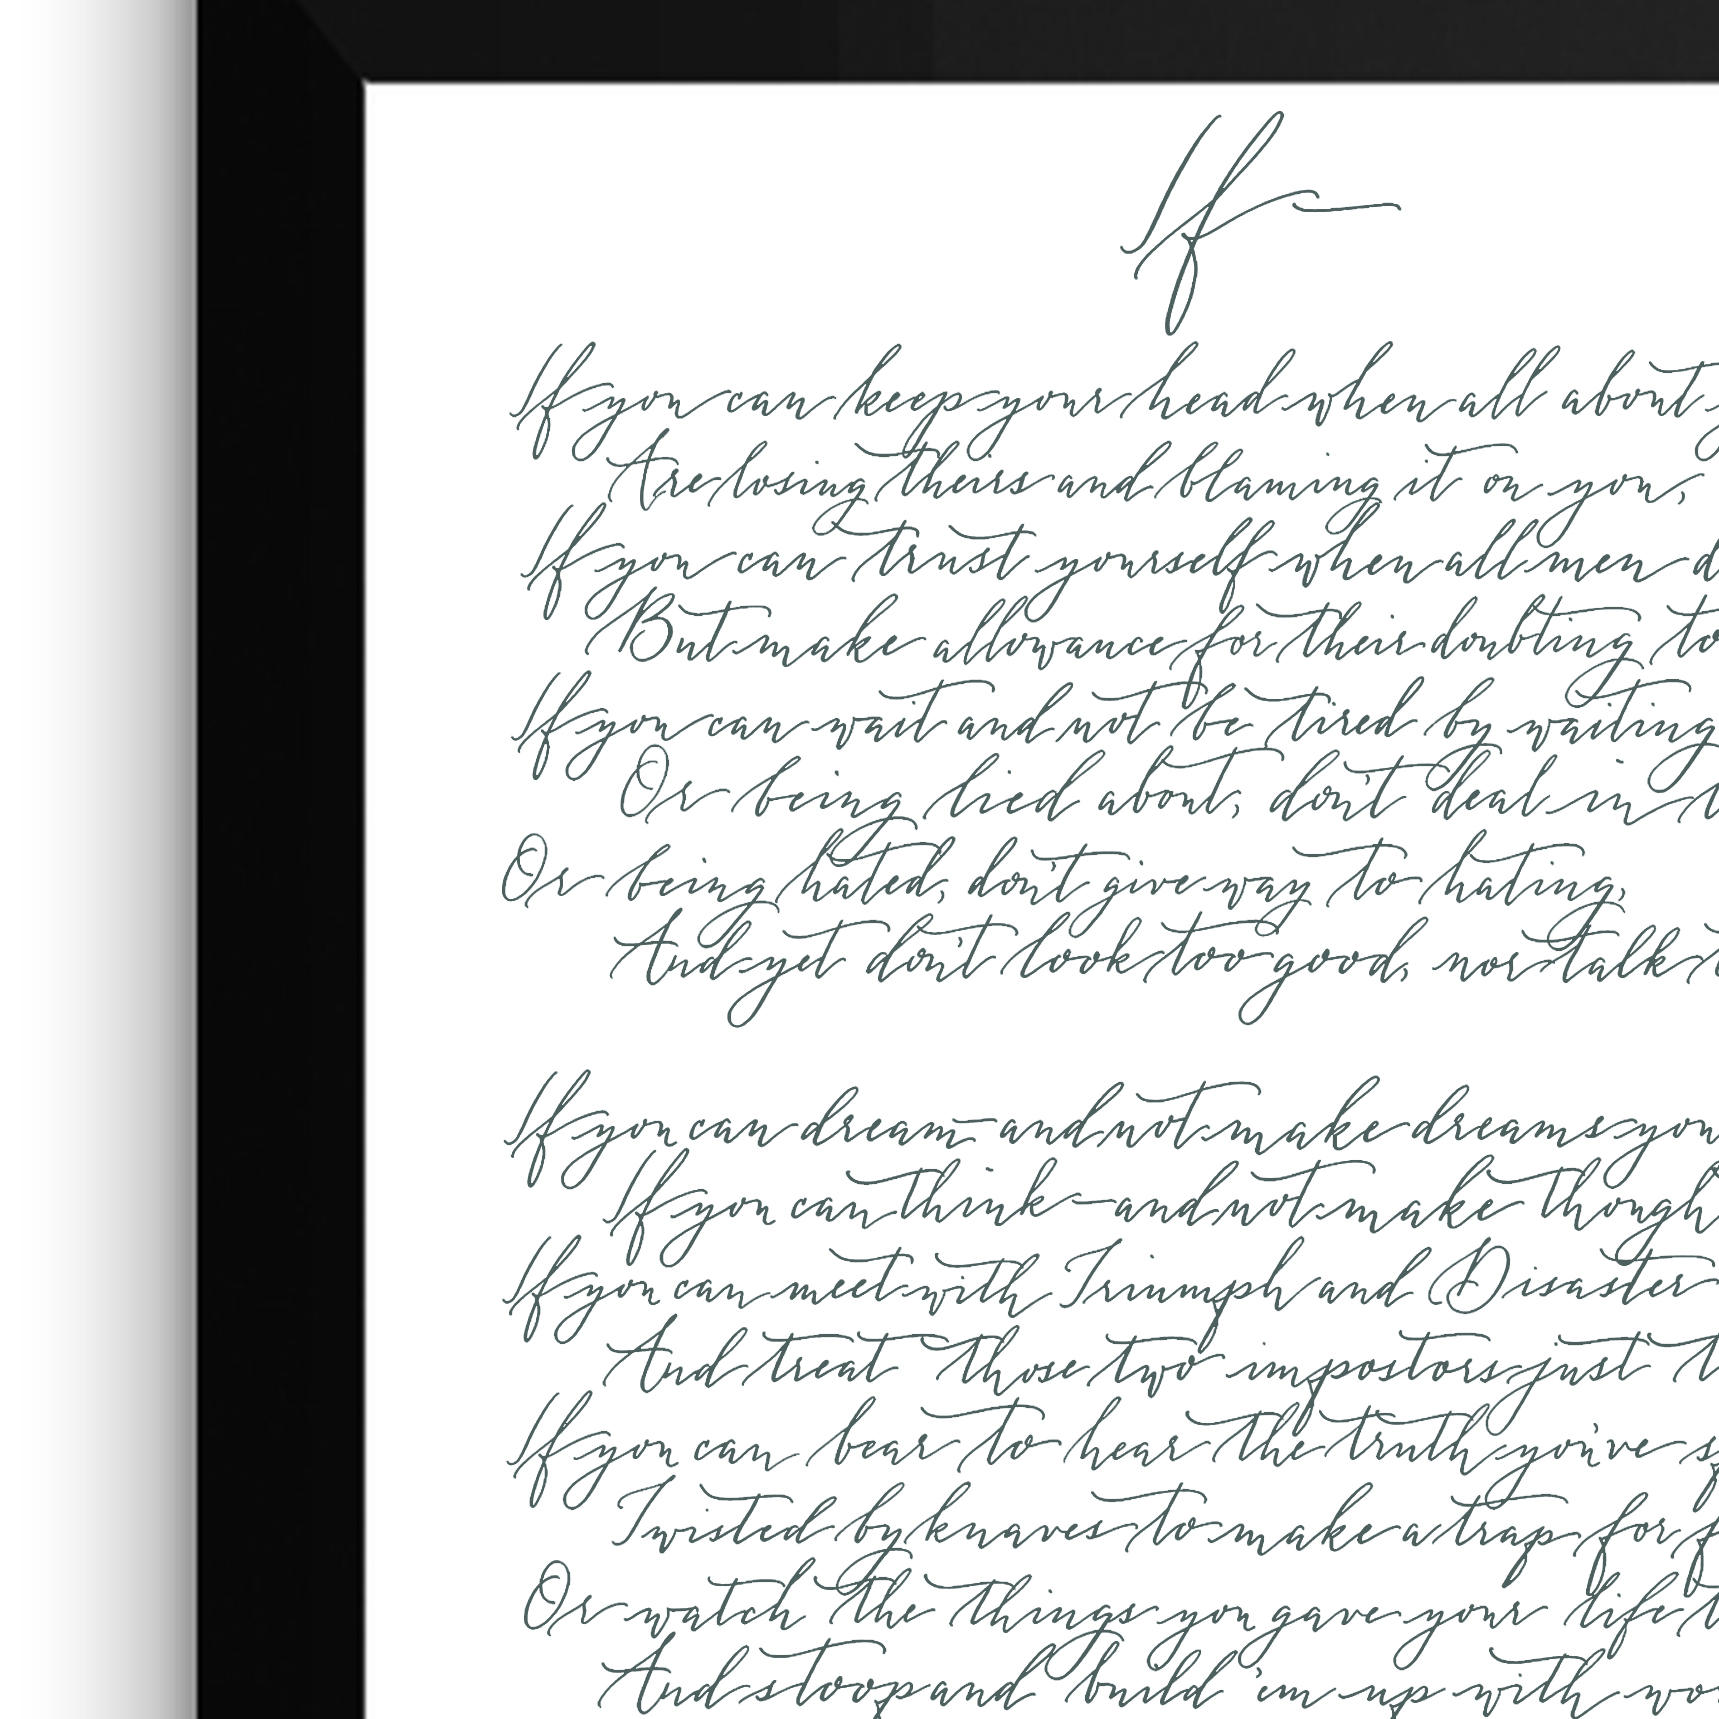 If —
If you can keep your head when all about
Are losing theirs and blaming it on you,
If you can trust yourself when all men d
But make allowance for their doubting to
If you can wait and not be tired by waiting
Or being lied about, don't deal in
Or being hated, don't give way to hating,
And yet don't look too good, nor talk t
If you can dream—and not make dreams you
If you can think—and not make though
If you can meet with Triumph and Disaster
And treat those two impostors just t
If you can bear to hear the truth you've s
Twisted by knaves to make a trap for f
Or watch the things you gave your life t
And stoop and build 'em up with wo